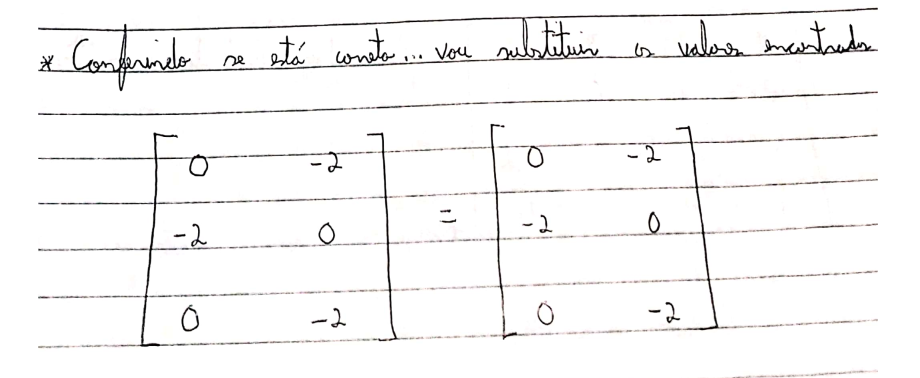 * Conferindo se está correto... vou substituir os valores encontrados
0 -2 0 -2
-2 0 = -2 0
0 -2 0 -2